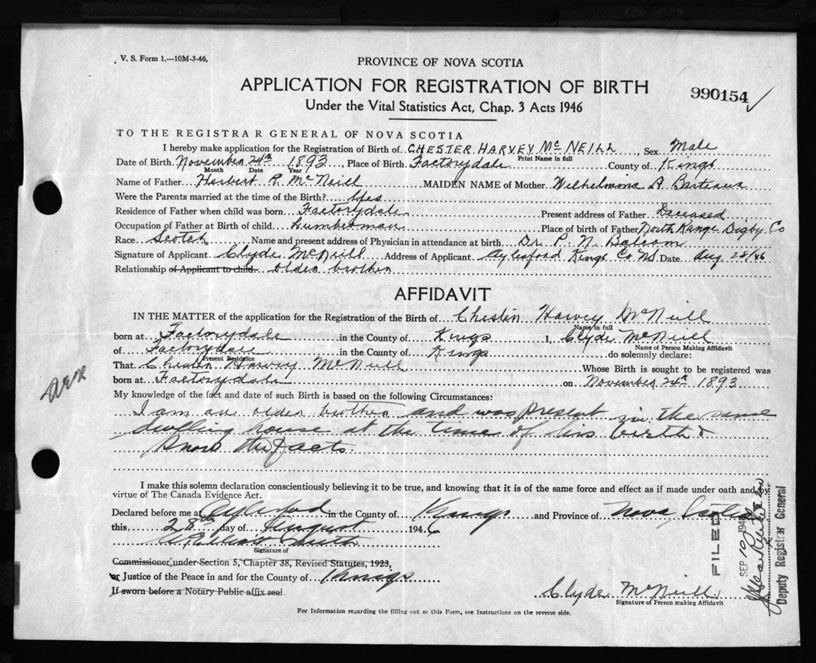 V. S. Form 1.—10M-3-46.
PROVINCE OF NOVA SCOTIA
APPLICATION FOR REGISTRATION OF BIRTH
990154
Under the Vital Statistics Act, Chap. 3 Acts 1946
TO THE REGISTRAR GENERAL OF NOVA SCOTIA
I hereby make application for the Registration of Birth of CHESTER HARVEY Mc NEILL, Sex Male
Print Name in full
Date of Birth November 24th 1893, Place of Birth Factorydale County of Kings
Month Date Year
Name of Father Herbert R. McNeill MAIDEN NAME of Mother Wilhelmona A Barteaux
Were the Parents married at the time of the Birth? Yes
Residence of Father when child was born Factorydale Present address of Father Deceased
Occupation of Father at Birth of child Lumberman Place of birth of Father North Range Digby Co
Race Scotch Name and present address of Physician in attendance at birth Dr. P. N. Balcom
Signature of Applicant Clyde McNeill Address of Applicant Aylesford Kings Co NS Date Aug 28/46
Relationship of Applicant to child older brother
AFFIDAVIT
IN THE MATTER of the application for the Registration of the Birth of Chester Harvey McNeill
Name in full
born at Factorydale in the County of Kings I, Clyde McNeill
Name of Person Making Affidavit
of Factorydale in the County of Kings do solemnly declare:
Present Residence
That Chester Harvey McNeill Whose Birth is sought to be registered was
born at Factorydale on November 24th 1893
My knowledge of the fact and date of such Birth is based on the following Circumstances:
I am an older brother and was present in the same
dwelling house at the time of his birth &
know the facts.
I make this solemn declaration conscientiously believing it to be true, and knowing that it is of the same force and effect as if made under oath and by
virtue of The Canada Evidence Act.
Declared before me at Aylesford in the County of Kings and Province of Nova Scotia
this 28th day of August 1946
Signature of
Commissioner under Section 5, Chapter 38, Revised Statutes, 1923,
or Justice of the Peace in and for the County of Kings
If sworn before a Notary Public affix seal.
Clyde McNeill
Signature of Person making Affidavit
For Information regarding the filling out or this Form, see Instructions on the reverse side.
FILED
SEP 10 1946
Deputy Registrar General